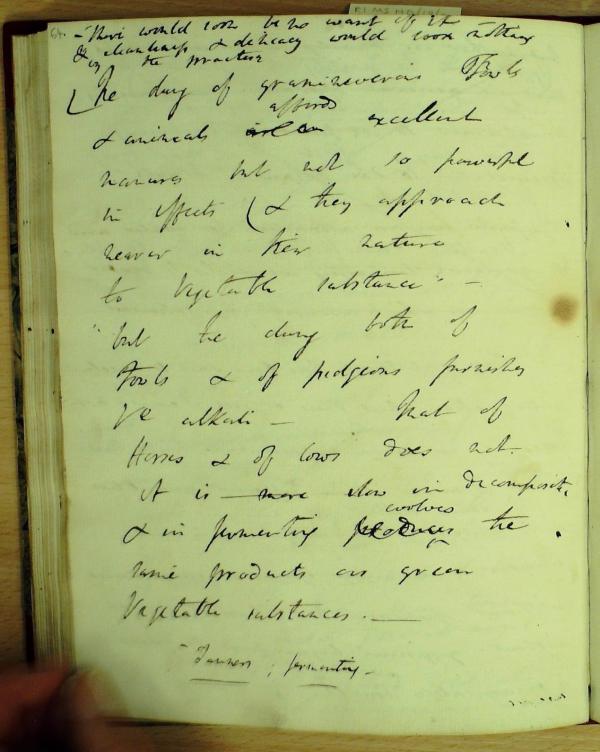 64.
- There would soon be no want of it
& cleanliness & delicacy would soon nothing
by the practice
The dung of graminivorous Fowls
affords
& animals excellent
manures but not so powerful
in effects (& they approach
nearer in their nature
to Vegetable substance" -
"but the dung both of
Fowls & of pidgeons furnishes
Vc alkali - that of
Horses & of cows does not.
it is more slow in decomposit.
evolves
& in fermenting produces the
same products as green
Vegetable substances. -
"Tanners ; fermenting -